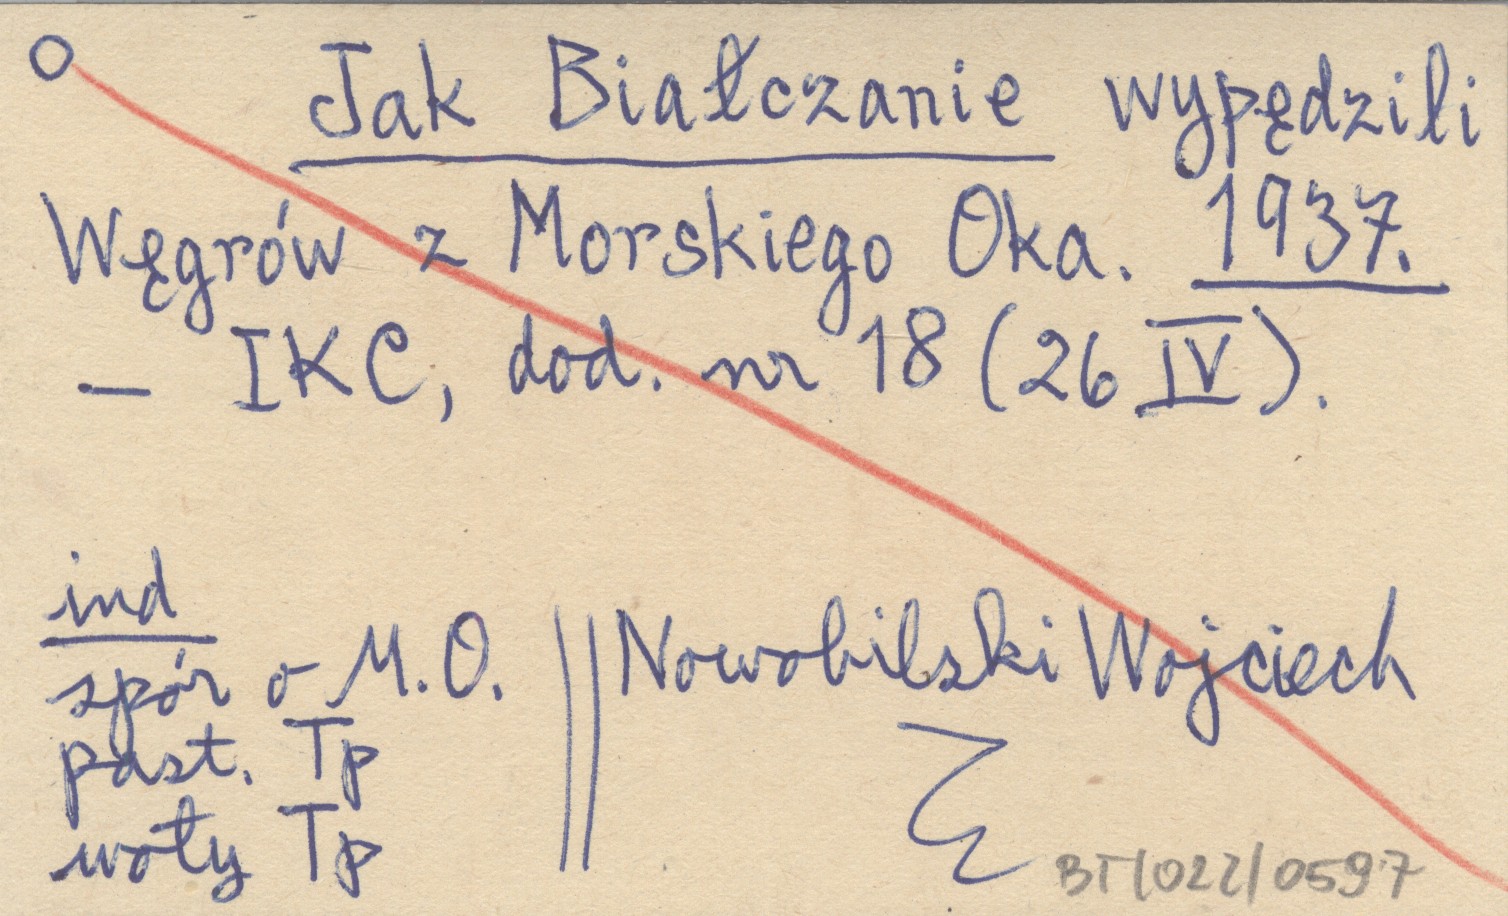 O Jak Białczanie wypędzili
Węgrów z Morskiego Oka. 1937.
– IKC, dod. nr 18 (26 IV).
ind
spór o M.O.
past. Tp
woły Tp
Nowobilski Wojciech
BT/022/0597